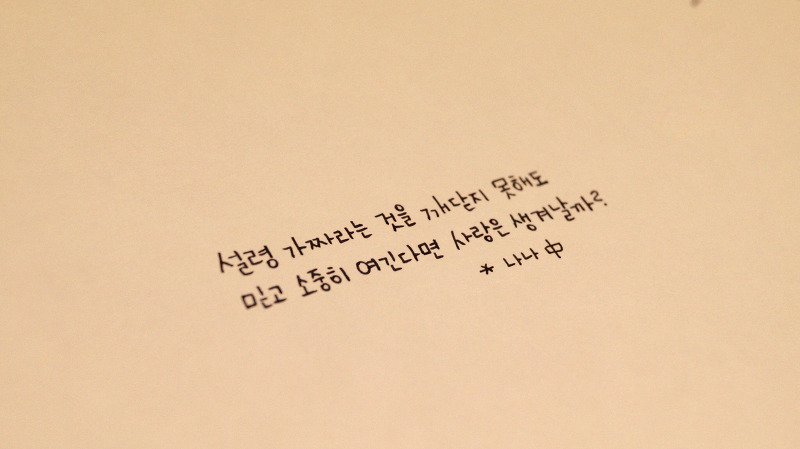 설령 가짜라는 것을 깨닫지 못해도
믿고 소중히 여긴다면 사랑은 생겨날까?
* 나나 中